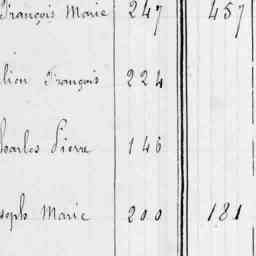 François Marie 247 457
lien François 224
harles Pierre 146
seph Marie 200 181